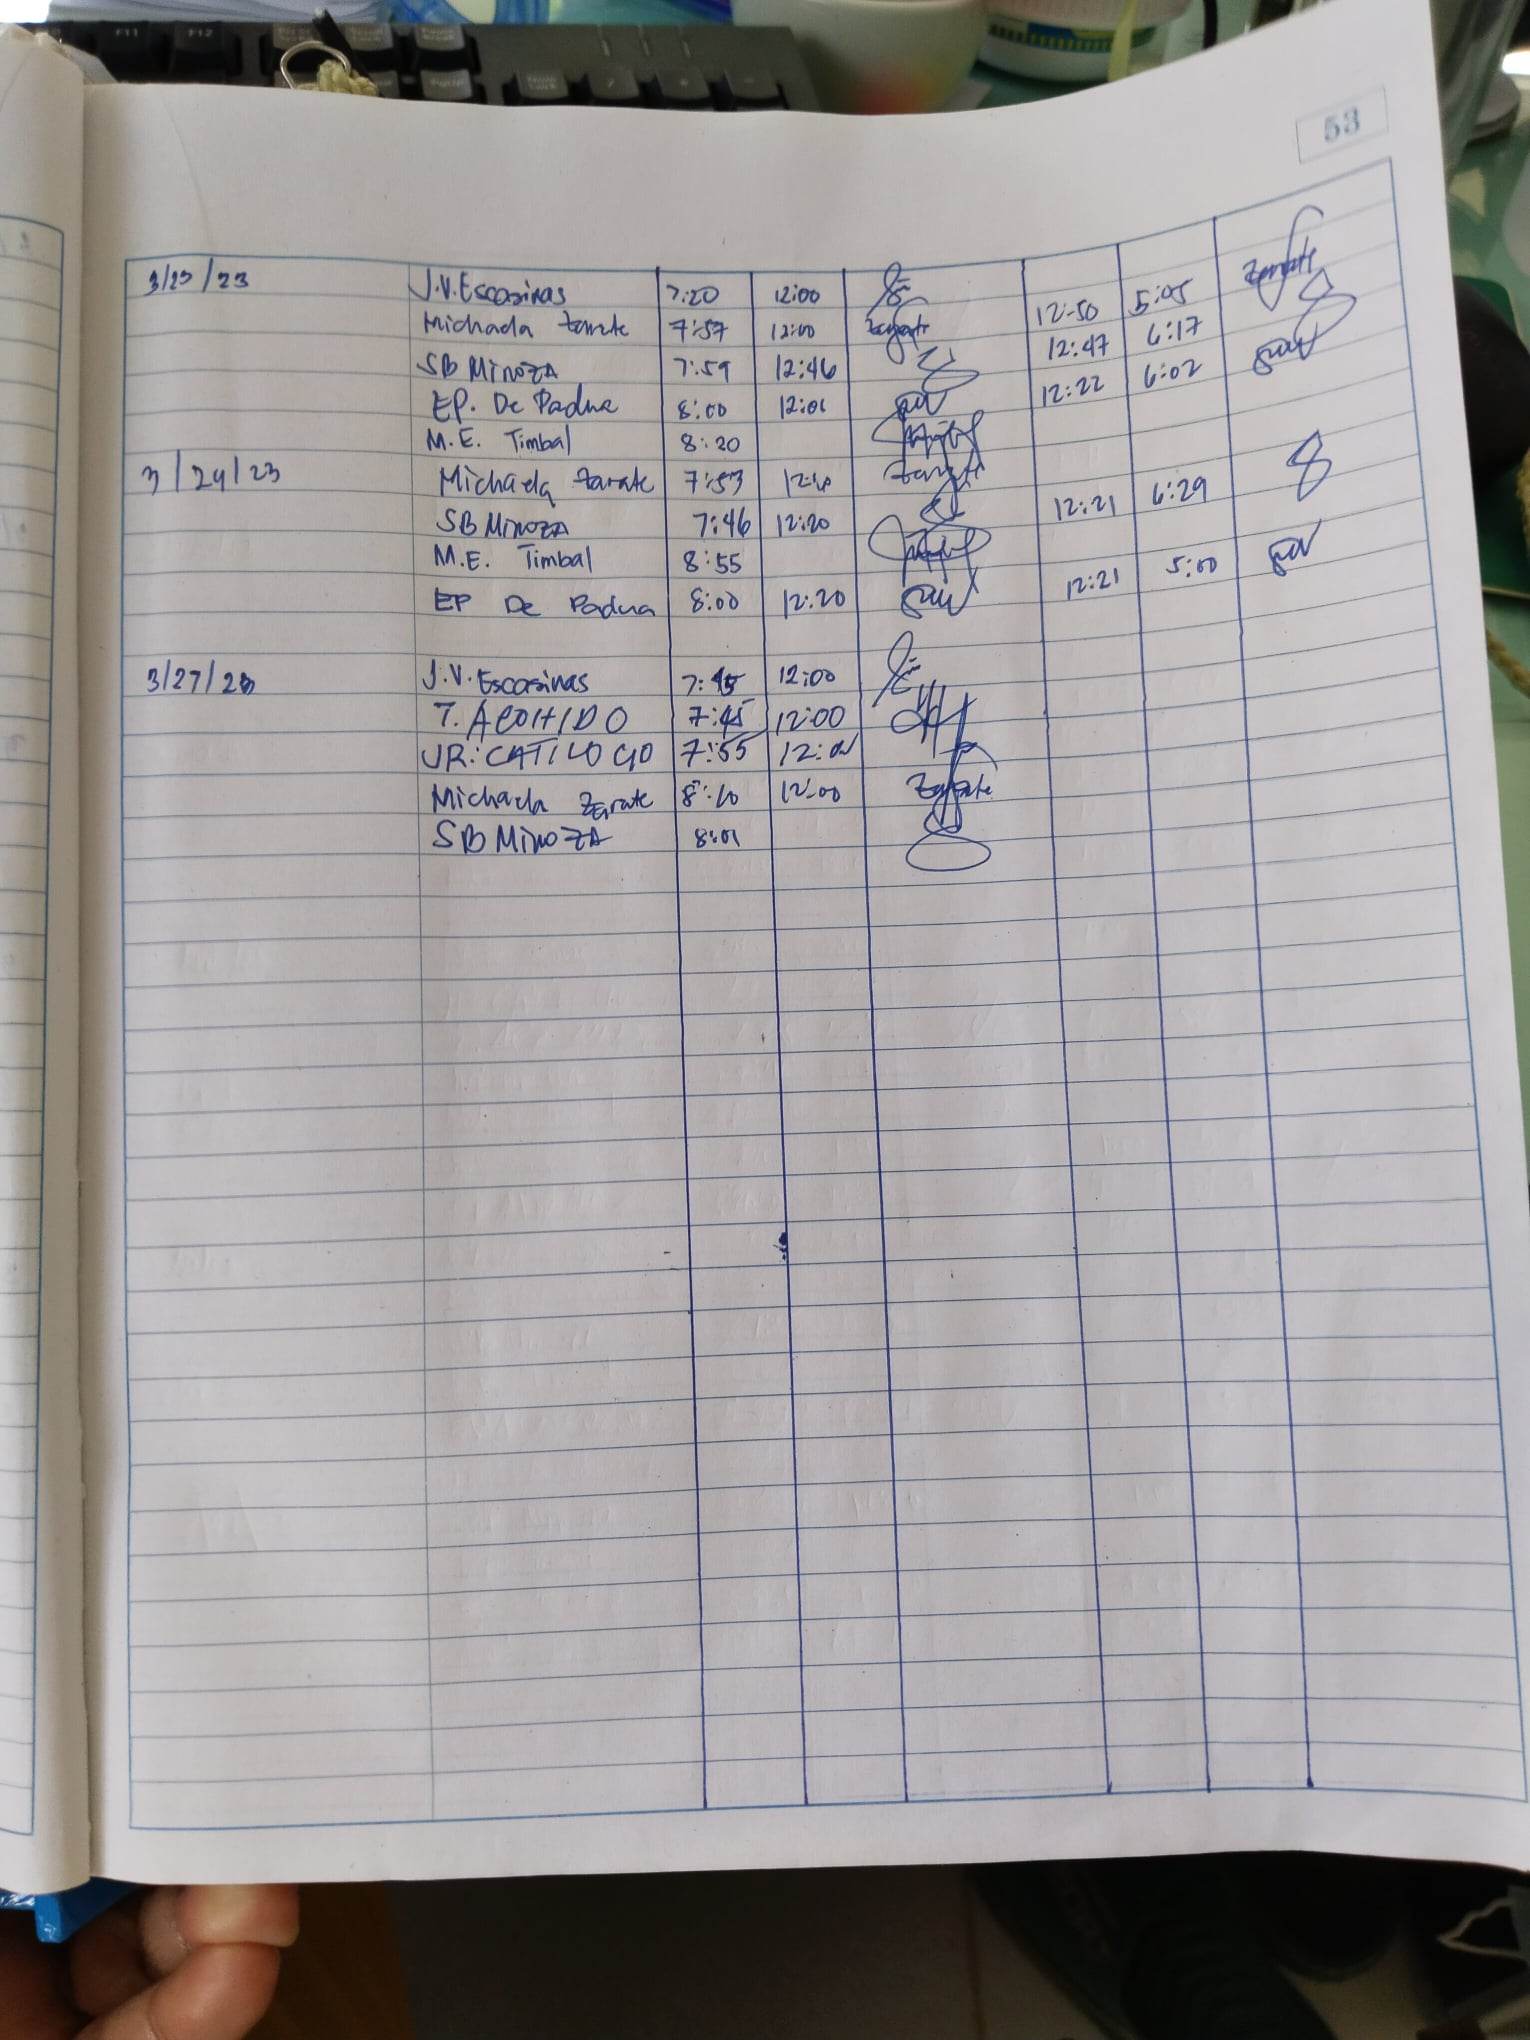 F11 F12
53
3/23/23 J.V. Escosinas 7:20 12:00 12:50 5:05
Michaela Zarate 7:57 12:00 Zarate 12:47 6:17 Zarate
SB MINOZA 7:59 12:46 12:22 6:02
EP. De Padua 8:00 12:01
M.E. Timbal 8:20
3/24/23 Michaela Zarate 7:53 Zarate
SB MINOZA 7:46 12:20 12:21 6:29
M.E. Timbal 8:55
EP De Padua 8:00 12:20 12:21 5:00
3/27/23 J.V. Escosinas 7:45 12:00
T. ACOHIDO 7:45 12:00
JR. CATILOGO 7:55
Michaela Zarate 8:10 12:00 Zarate
SB MINOZA 8:01